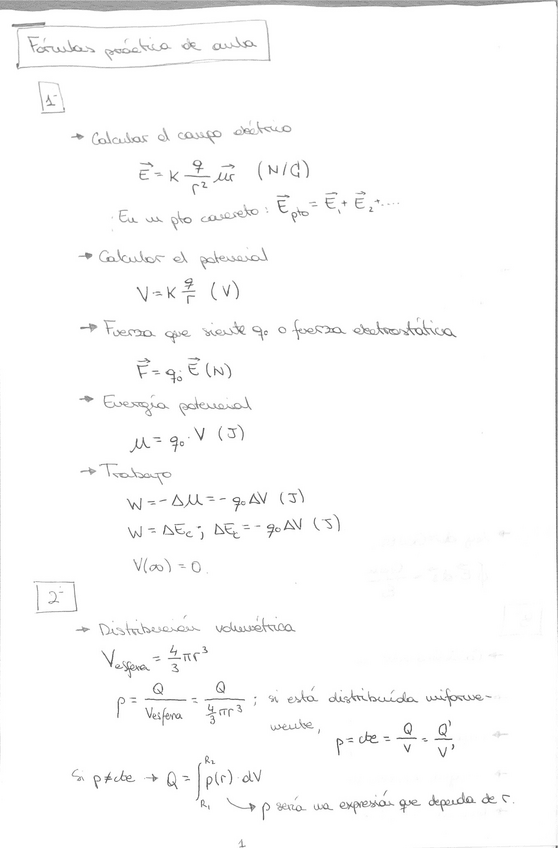 Fórmulas práctica de aula
1-
→ Calcular el campo eléctrico
E⃗ = K q/r² u⃗r (N/C)
En un pto concreto: E⃗pto = E⃗₁ + E⃗₂ + ....
→ Calcular el potencial
V = K q/r (V)
→ Fuerza que siente q₀ o fuerza electrostática
F⃗ = q₀·E⃗ (N)
→ Energía potencial
μ = q₀·V (J)
→ Trabajo
W = -Δμ = -q₀ΔV (J)
W = ΔEc ; ΔEt = -q₀ΔV (J)
V(∞) = 0.
2-
→ Distribución volumétrica
Vesfera = 4/3 πr³
ρ = Q/Vesfera = Q/(4/3 πr³) ; si está distribuída uniforme-
mente, ρ = cte = Q/V = Q'/V'
Si ρ ≠ cte → Q = ∫_R₁^R₂ ρ(r)·dV
↳ ρ sería una expresión que dependa de r.
1